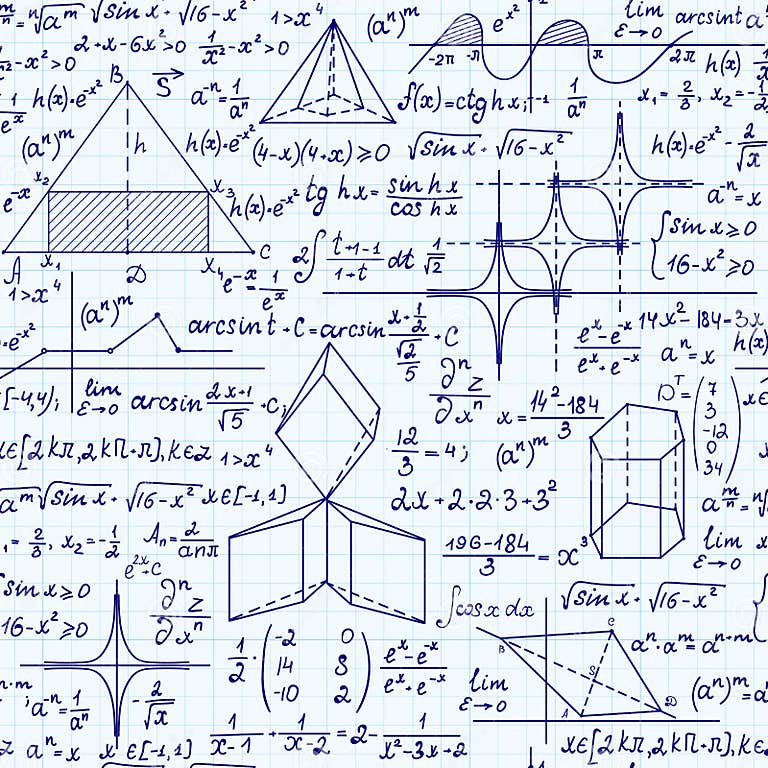 m/n = ⁿ√aᵐ √sin x · √16-x² 1>x⁴ (aⁿ)ᵐ e^x² lim ε→0 arcsint aⁿ
2+x-6x²>0 1/x²-x²>0
-x²>0 B S→ a⁻ⁿ=1/aⁿ -2π -π π 2π h(x)
1/eˣ h(x)·e^-x² f(x)=ctg hx; -1 1/aⁿ x₁=2/3, x₂=-1/2
(aⁿ)ᵐ h h(x)·e^-x² (4-x)(4+x)≥0 √sin x · √16-x² h(x)·e^-x² -2/√x
e^-x x₂ x₃ h(x)·e^-x² tg hx = sin hx/cos hx a⁻ⁿ=x
{sin x≥0
A x₁ D x₄ C 2∫ t+1-1/1+t dt 1/√2 16-x²≥0
1>x⁴ e^-x=1/eˣ
(aⁿ)ᵐ arcsin t + C = arcsin x+1/2 / √2/5 + C eˣ-e^-x/eˣ+e^-x 14x²-184=3x
·e^-x² aⁿ=x h(x)
[-4,4); lim ε→0 arcsin 2x+1/√5 +C; ∂ⁿz/∂xⁿ x=14²-184/3 Dᵀ=(7 3 -12 0 34) xє
xє[2kπ,2kπ+π],kєZ 1>x⁴ 12/3=4; (aⁿ)ᵐ
aᵐ √sin x · √16-x² xє[-1,1] 2x+2·2·3+3² a^m/n=
₁=2/3, x₂=-1/2 Aₙ=2/anπ 196-184/3=x³ lim ε→0 x
e^2x+C
sin x≥0 ∂ⁿz/∂xⁿ ∫cos x dx √sin x · √16-x²
16-x²≥0 1/2·(-2 0 14 8 -10 2) eˣ-e^-x/eˣ+e^-x B C aⁿ·aᵐ=aⁿ⁺ᵐ
n·m ;a⁻ⁿ=1/aⁿ -2/√x lim ε→0 S A D (aⁿ)ᵐ=a
z aⁿ=x x є[-1,1] 1/x-1 + 1/x-2 = 2- 1/x²-3x+2 xє[2kπ,2kπ+π],kє